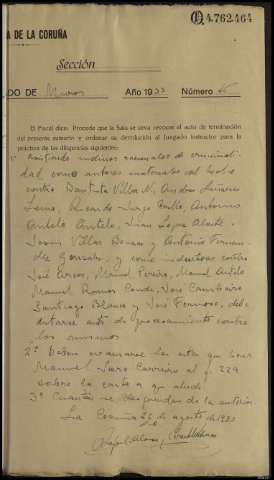 Q 4.762.464
A DE LA CORUÑA
Sección
DO DE Muros Año 1933 Número
El Fiscal dice: Procede que la Sala se sirva revocar el auto de terminación
del presente sumario y ordenar su devolución al Juzgado instructor para la
práctica de las diligencias siguientes:
1º Existiendo indicios racionales de criminali-
dad como autores materiales del hecho
contra Bautista Villa Andrés
Lema, Ricardo Lago Antonio
Antelo Antelo, Juan Lopez
Jesús Villar y Antonio Fernan-
dez Gonzalez, y como inductores contra
José Manuel Pereira, Manuel Antelo
Manuel Ramos Conde, José
Santiago Blanco y José debe
dictarse auto de procesamiento contra
los mismos
2º Debe
Manuel Carreira al f. 229
sobre la carta a que alude
3º Cuantas se desprendan de la anterior.
La Coruña 26 de agosto de 1933